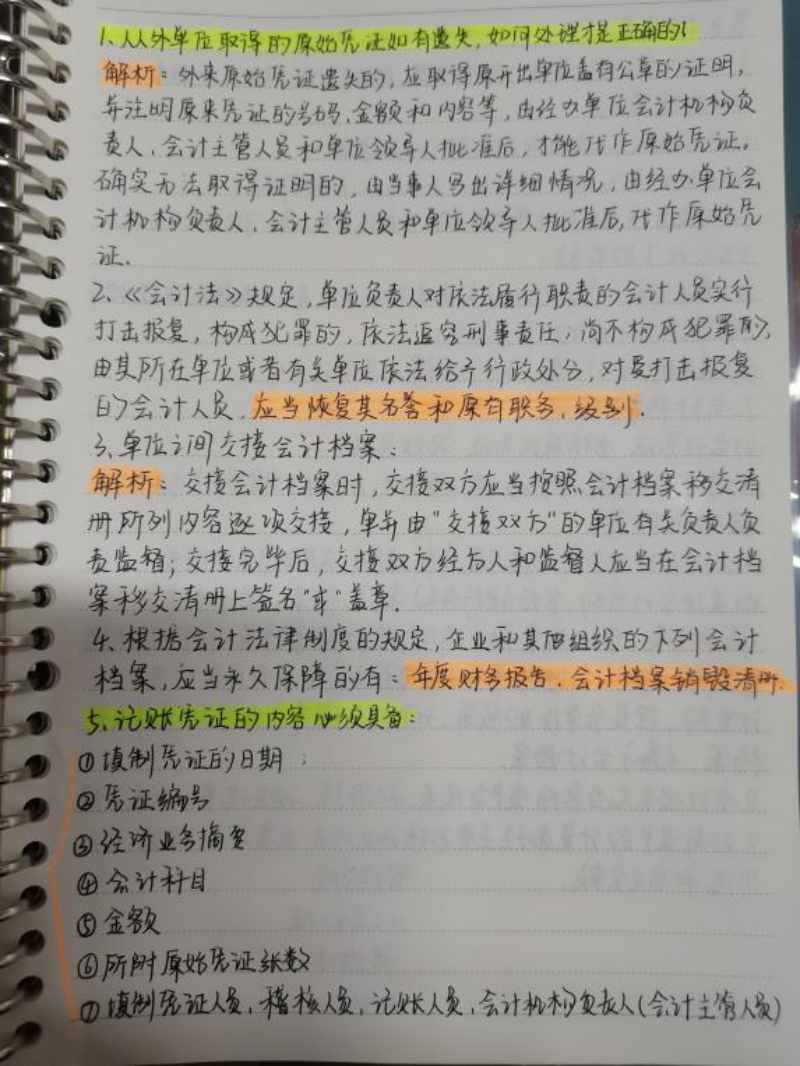 1、从外单位取得的原始凭证如有遗失,如何处理才是正确的!
解析:外来原始凭证遗失的,应取得原开出单位盖有公章的证明,
并注明原来凭证的号码、金额和内容等,由经办单位会计机构负
责人、会计主管人员和单位领导人批准后,才能代作原始凭证。
确实无法取得证明的,由当事人写出详细情况,由经办单位会
计机构负责人、会计主管人员和单位领导人批准后,代作原始凭
证.
2、《会计法》规定,单位负责人对依法履行职责的会计人员实行
打击报复,构成犯罪的,依法追究刑事责任;尚不构成犯罪的,
由其所在单位或者有关单位依法给予行政处分,对受打击报复
的会计人员,应当恢复其名誉和原有职务、级别.
3、单位之间交接会计档案:
解析:交接会计档案时,交接双方应当按照会计档案移交清
册所列内容逐项交接,并由"交接双方"的单位有关负责人负
责监督;交接完毕后,交接双方经办人和监督人应当在会计档
案移交清册上签名"或"盖章.
4、根据会计法律制度的规定,企业和其他组织的下列会计
档案,应当永久保障的有:年度财务报告、会计档案销毁清册.
5、记账凭证的内容必须具备:
①填制凭证的日期;
②凭证编号
③经济业务摘要
④会计科目
⑤金额
⑥所附原始凭证张数
⑦填制凭证人员、稽核人员、记账人员、会计机构负责人(会计主管人员)